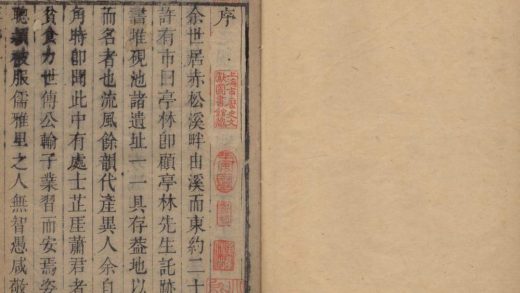 序
上海市歷史文獻圖書館藏
余世居赤松溪畔由溪而東約二十
許有市曰亭林卽顧亭林先生託跡
書堆硯池諸遺址一一具存葢地以
而名者也流風餘韻代產異人余自
角時卽聞此中有處士芷厓蕭君者
貧食力世傳公輸子業習而安焉姿
聰頴被服儒雅里之人無智愚咸敬